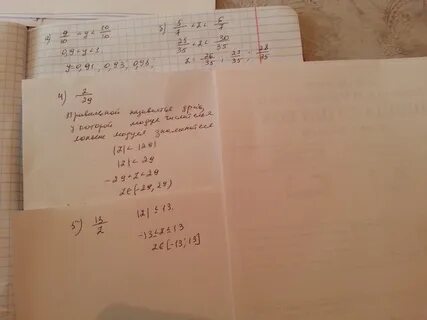 а) 9/10 < y < 10/10
0,9 < y < 1
y = 0,91, 0,93, 0,95
б) 5/7 < z < 6/7
25/35 < z < 30/35
z = 26/35; 27/35; 28/35
4) z/29
Правильной называется дробь,
у которой модуль числителя
меньше модуля знаменателя
|z| < |29|
|z| < 29
-29 < z < 29
z ∈ (-29, 29)
5) 13/z
|z| ≤ 13
-13 ≤ z ≤ 13
z ∈ [-13; 13]